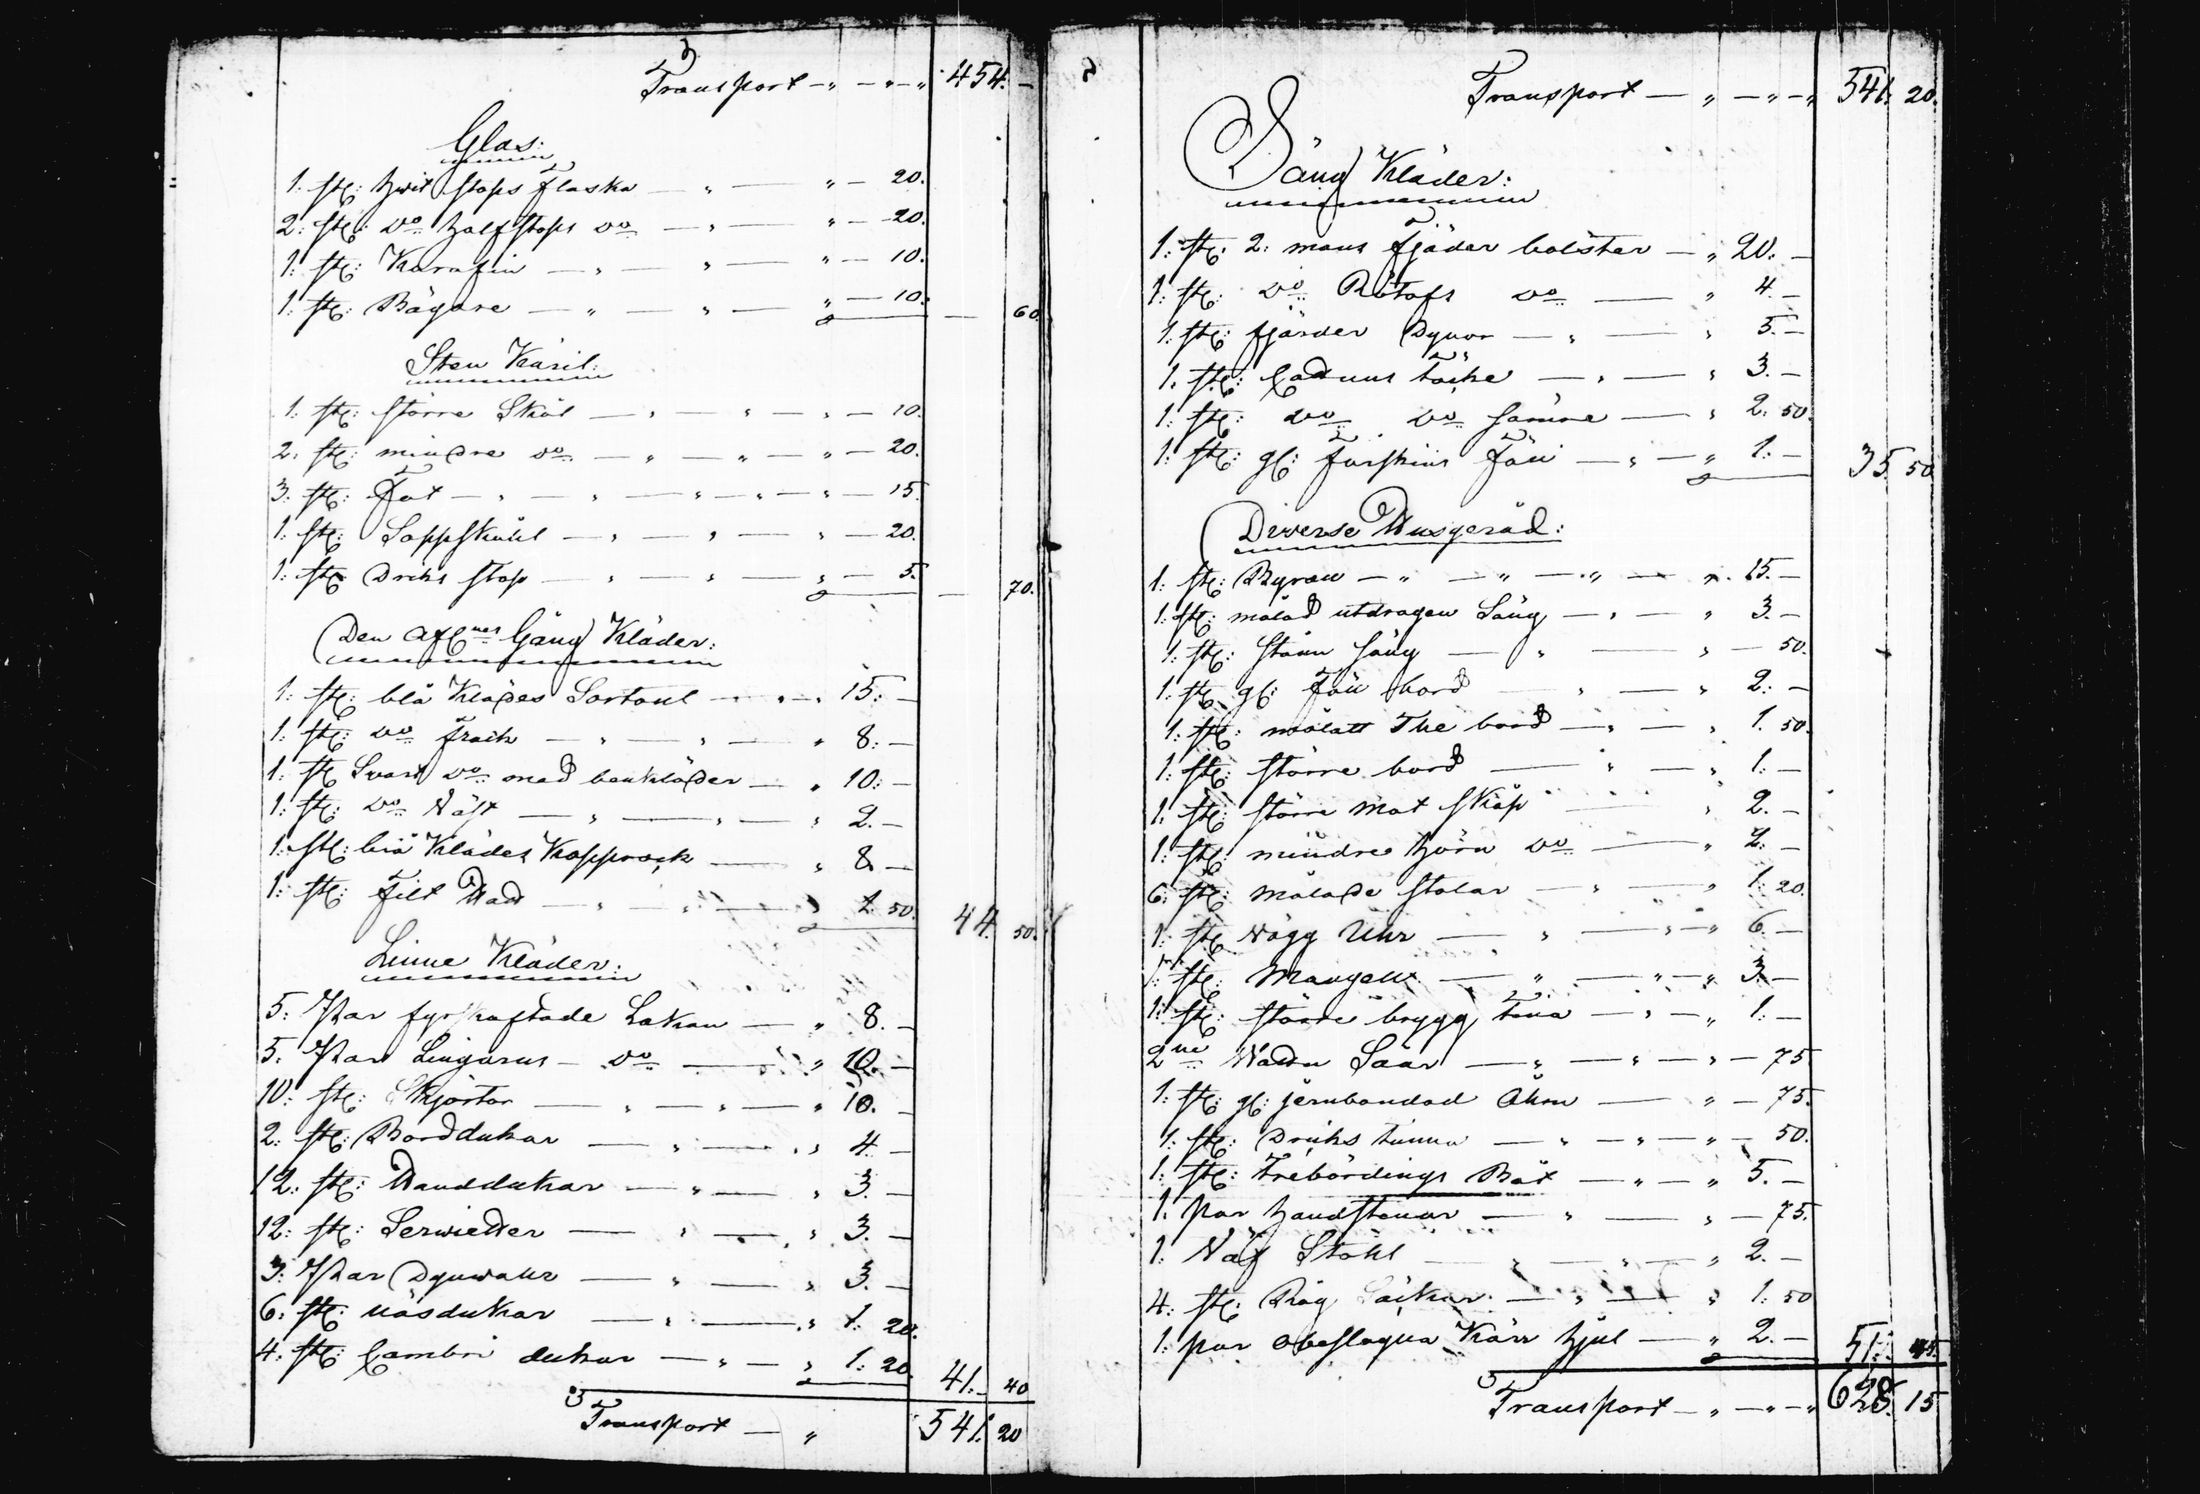 Transport 454. —
Glas:
1. st: hwit stops Flaska 20.
2. st: do halfstops do 20.
1. st: Karafin 10.
1. st: Bägare 10. 60.
Sten Käril:
1. st: större Skål 10.
2. st: mindre do 20.
3. st: Fat 15.
1. st: Soppskåhl 20.
1. st: Dricks stop 5. 70.
Den Aflnes Gång Kläder:
1. st: blå Klädes Sortout 15. —
1. st: do Frack 8. —
1. st: Svart do med benkläder 10. —
1. st: do Väst 2. —
1. st: blå Klädes Kapprock 8. —
1. st: Filt Hatt 1. 50. 44. 50.
Linne Kläder:
5. Par fyrskaftade Lakan 8. —
5. Par Lingarns do 10. —
10. st: Skjortor 10. —
2. st: Borddukar 4. —
12. st: Handdukar 3. —
12. st: Serwietter 3. —
3. Par Dynwahr 3. —
6. st: näsdukar 1. 20.
4. st: Cambri dukar 1. 20. 41. 40
Transport 541. 20
Transport 541. 20.
Säng Kläder:
1. st: 2. mans Fjäder bolster 20. —
1. st: do Rötafs do 4. —
1. st: fjärder Dynor 5. —
1. st: Cattuns täcke 3. —
1. st: do do sämre 2. 50.
1. st: gl: Fårskins Fäll 1. — 35. 50
Diverse Husgeråd:
1. st: Byrau 15. —
1. st: målad utdragen Säng 3. —
1. st: sämr säng 50.
1. st: gl: Fäll bord 2. —
1. st: målatt The bord 1. 50.
1. st: större bord 1. —
1. st: större mat skåp 2. —
1. st: mindre hörn do 2. —
6. st: målade stolar 1. 20.
1. st: Vägg Uhr 6. —
1. st: Mangell 3. —
1. st: större brygg tina 1. —
2ne Vattu Såar 75.
1. st: gl: jernbandad Åhm 75.
1. st: Dricks tunna 50.
1. st: Trebördings Båt 5. —
1. par handstenar 75.
1. Väf Stohl 2. —
4. st: Råg Säckar 1. 50
1. par obeslagna Kärr hjul 2. — 51. 45.
Transport 628. 15